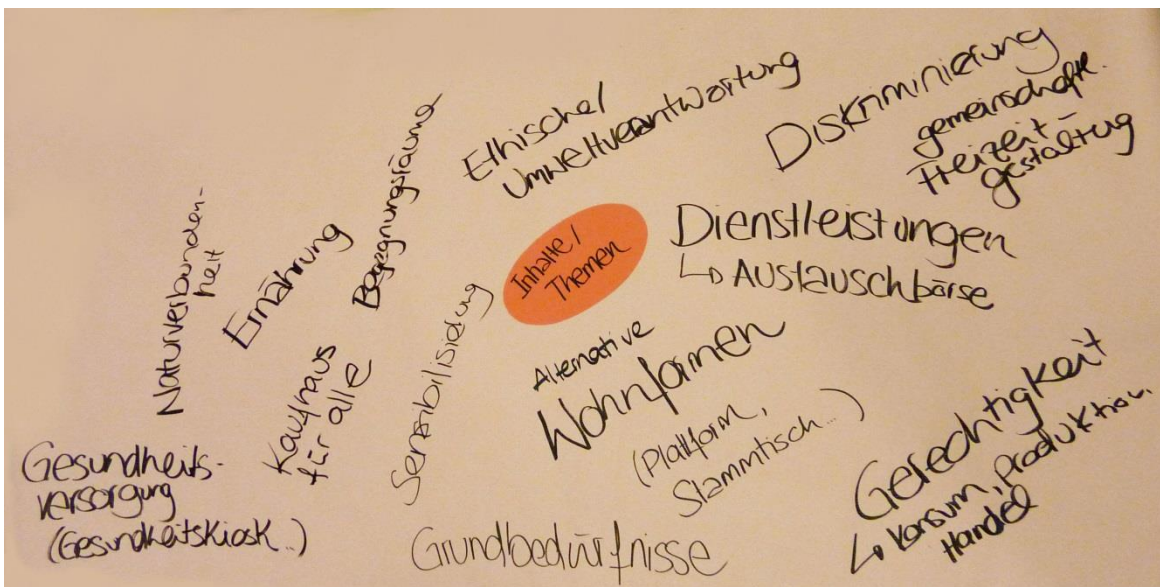 Inhalte/
Themen
Ethische/
Umweltverantwortung
Diskriminierung
gemeinschaftl.
Freizeit-
gestaltung
Dienstleistungen
↳ Austauschbörse
Alternative
Wohnformen
(Plattform,
Stammtisch...)
Gerechtigkeit
↳ Konsum, Produktion,
Handel
Grundbedürfnisse
Sensibilisierung
Begegnungsräume
Kaufhaus
für alle
Ernährung
Naturverbunden-
heit
Gesundheits-
versorgung
(Gesundheitskiosk...)